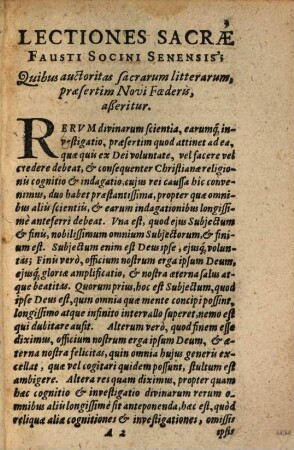 3
LECTIONES SACRÆ
FAUSTI SOCINI SENENSIS;
Quibus auctoritas sacrarum litterarum,
præsertim Novi Fœderis,
aßeritur.
RERVM divinarum scientia, earumq́, in-
vestigatio, præsertim quod attinet ad ea,
quæ quis ex Dei voluntate, vel facere vel
credere debeat, & consequenter Christianæ religio-
nis cognitio & indagatio, cujus rei caussa hic conve-
nimus, duo habet præstantissima, propter quæ om-
nibus aliis scientiis, & earum indagationibus longissi-
mè anteferri debeat. Vna est, quod ejus Subjectum
& finis, nobilissimum omnium Subjectorum, & fi-
nium est. Subjectum enim est Deus ipse, ejusq́, volun-
tas; Finis verò, officium nostrum erga ipsum Deum,
ejusq́, gloriæ amplificatio, & nostra æterna salus at-
que beatitas. Quorum prius, hoc est Subjectum, quod
ipse Deus est, quin omnia quæ mente concipi possint,
longissimo atque infinito intervallo superet, nemo est
qui dubitare ausit. Alterum verò, quod finem esse
diximus, officium nostrum erga ipsum Deum, & æ-
terna nostra felicitas, quin omnia hujus generis ex-
cellat, quæ vel cogitari quidem possunt, stultum est
ambigere. Altera res quam diximus, propter quam
hæc cognitio & investigatio divinarum rerum o-
mnibus aliis longissimè sit anteponenda, hæc est, quòd
reliquæ aliæ cognitiones & investigationes, omissis
A 2 ipsis